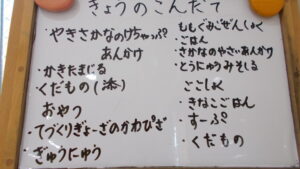 きょうのこんだて
やきさかなのけちゃっぷ
あんかけ
・かきたまじる
・くだもの(添)
おやつ
・てづくりぎょーざのかわぴざ
・ぎゅうにゅう
ももぐみごぜんしょく
・ごはん
・さかなのやさいあんかけ
・とうにゅうみそしる
ごごしょく
・きなこごはん
・すーぷ
・くだもの